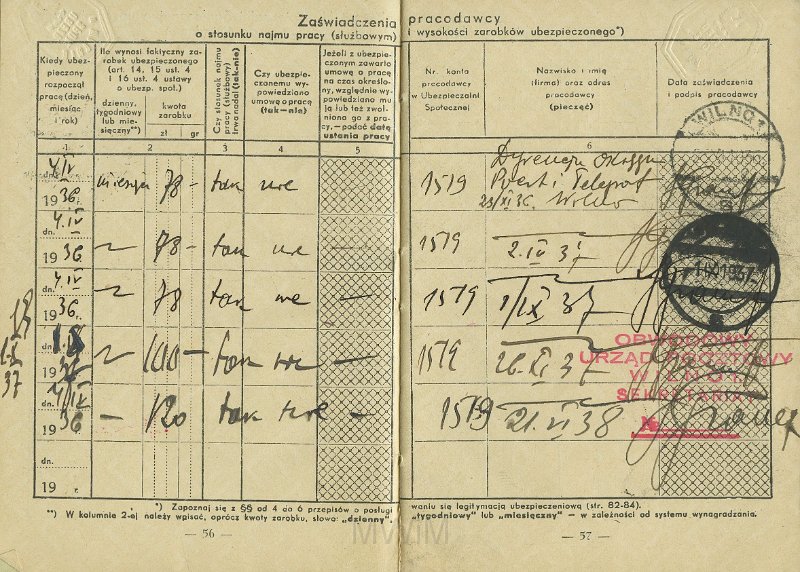 Zaświadczenia pracodawcy
o stosunku najmu pracy (służbowym) i wysokości zarobków ubezpieczonego*)
Kiedy ubez-
pieczony
rozpoczął
pracę (dzień,
miesiąc,
i rok)
Ile wynosi faktyczny za-
robek ubezpieczonego
(art. 14, 15 ust. 4
i 16 ust. 4 ustawy
o ubezp. społ.)
dzienny,
tygodniowy
lub mie-
sięczny**)
kwota
zarobku
zł gr
Czy stosunek najmu
pracy (służbowy)
trwa nadal (tak-nie)
Czy ubezpie-
czonemu wy-
powiedziano
umowę o pracę
(tak—nie)
Jeżeli z ubezpie-
czonym zawarto
umowę o pracę
na czas określo-
ny, względnie wy-
powiedziano mu
ją lub też zwol-
niono go z pra-
cy, — podać datę
ustania pracy
Nr. konta
pracodawcy
w Ubezpieczalni
Społecznej
Nazwisko i imię
(firma) oraz adres
pracodawcy
(pieczęć)
Data zaświadczenia
i podpis pracodawcy
1 2 3 4 5 6
dn. 4/IV
19 36 r.
78 — tak nie
1519
23/XI 36. Wilno
WILNO 1
dn. 4.IV
19 36 r.
78 — tak nie —
1519
2.IV 37
dn. 4.IV
19 36 r.
78 tak nie —
1519
1/IX 37
1 IX 1937
dn. 1.8
19 37
100 — tak nie —
1519
26.XI 37
OBWODOWY
URZĄD POCZTOWY
WILNO 1
SEKRETARIAT
1.X
37
dn. 4/IV
19 36 r.
— 120 tak nie —
1519
21.VI 38
dn.
19 r.
*) Zapoznaj się z §§ od 4 do 6 przepisów o posługi waniu się legitymacją ubezpieczeniową (str. 82-84).
**) W kolumnie 2-ej należy wpisać, oprócz kwoty zarobku, słowo: „dzienny", „tygodniowy" lub „miesięczny" — w zależności od systemu wynagradzania.
— 56 —
— 57 —
MWiM